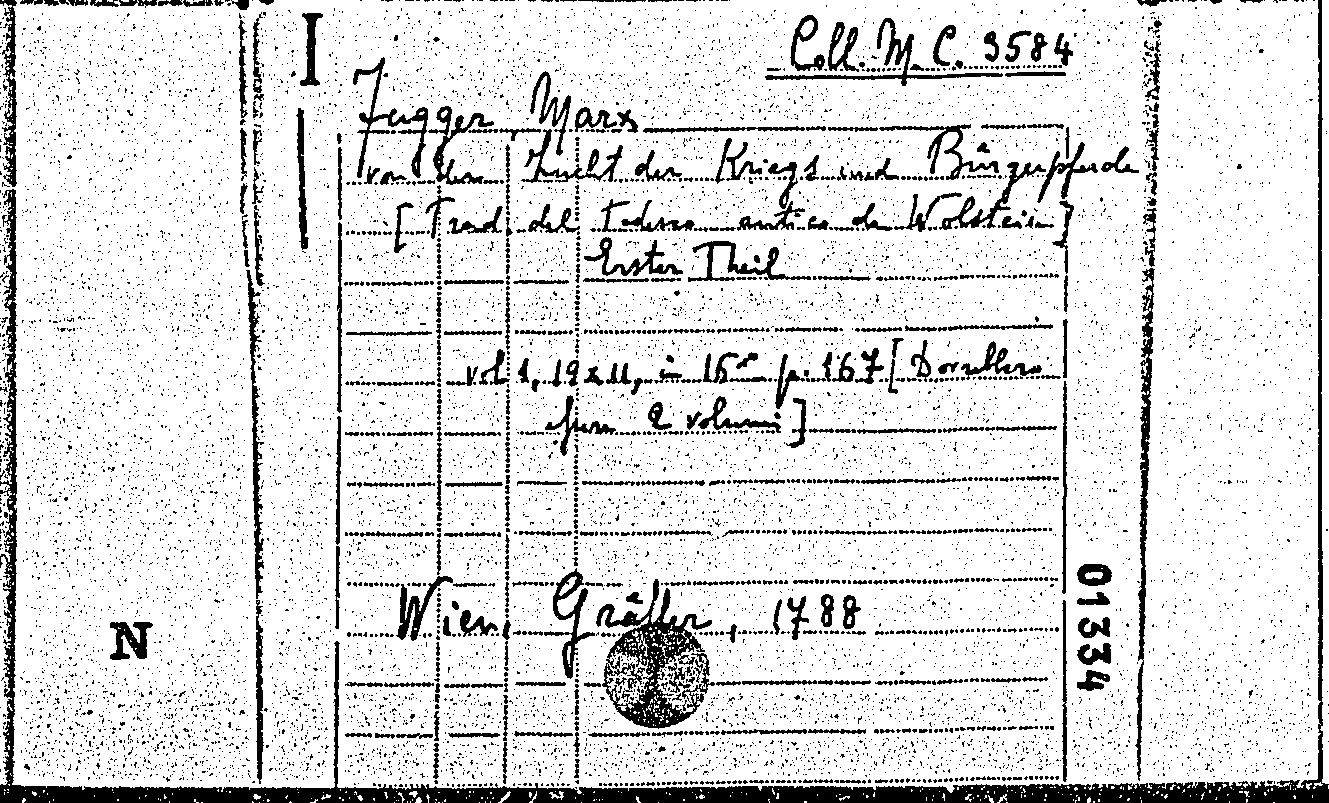 I
Coll. M. C. 3584
Fugger, Marx
von der Zucht der Kriegs und Bürgerpferde
[Trad. del Tedesco antico da Wolstein]
Erster Theil
vol 1, 19x11, in 16º p. 167 [Dovrebbero
essere 2 volumi]
Wien, Gräffer, 1788
01334
N